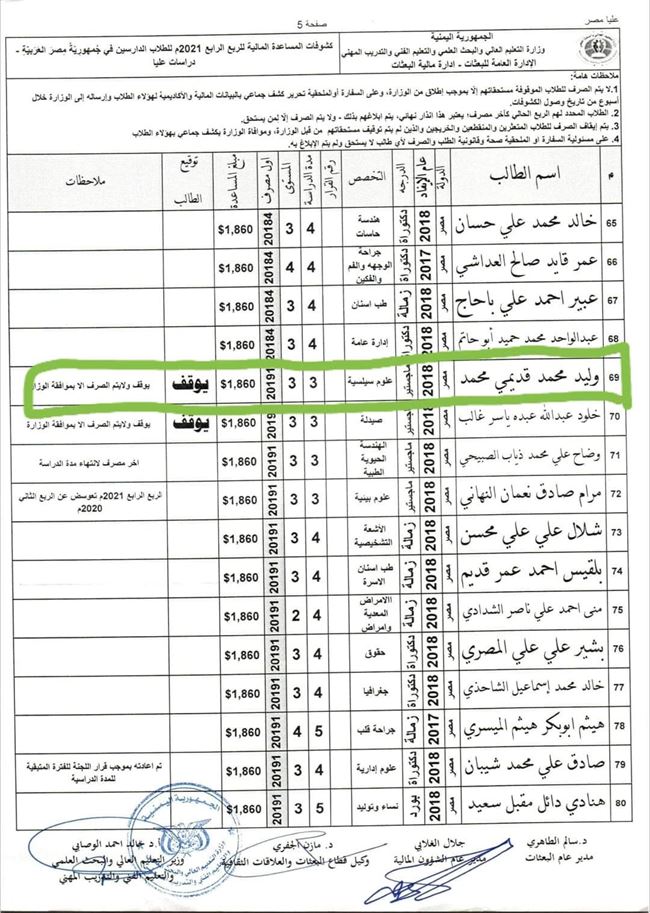 عليا مصر
صفحة 5
الجمهورية اليمنية
وزارة التعليم العالي والبحث العلمي والتعليم الفني والتدريب المهني
الإدارة العامة للبعثات - إدارة مالية البعثات
كشوفات المساعدة المالية للربع الرابع 2021م للطلاب الدارسين في جمهورية مصر العربية - دراسات عليا
ملاحظات هامة:
1. لا يتم الصرف للطلاب الموقوفة مستحقاتهم إلا بموجب إطلاق من الوزارة، وعلى السفارة أوالملحقية تحرير كشف جماعي بالبيانات المالية والأكاديمية لهؤلاء الطلاب وإرساله إلى الوزارة خلال
أسبوع من تاريخ وصول الكشوفات.
2. الطلاب المحدد لهم الربع الحالي كآخر مصرف؛ يعتبر هذا انذار نهائي، يتم ابلاغهم بذلك - ولا يتم الصرف إلا لمن يستحق.
3. يتم إيقاف الصرف للطلاب المتعثرين والمنقطعين والخريجين والذين لم يتم توقيف مستحقاتهم من قبل الوزارة، وموافاة الوزارة بكشف جماعي بهؤلاء الطلاب
4. على مسئولية السفارة أو الملحقية صحة وقانونية الطلب والصرف لأي طالب لا يستحق ولم يتم الإبلاغ به.
م اسم الطالب الدولة عام الإيفاد الدرجه التخصص رقم القرار مدة الدراسة المستوى اول مصرف مبلغ المساعدة توقيع الطالب ملاحظات
65 خالد محمد علي حسان مصر 2018 دكتوراة هندسة حاسات 4 3 20184 $1,860
66 عمر قايد صالح العداشي مصر 2017 دكتوراة جراحة الوجهه والفم والفكين 4 4 20184 $1,860
67 عبير احمد علي باحاج مصر 2018 زمالة طب اسنان 4 3 20184 $1,860
68 عبدالواحد محمد حميد أبو حاتم مصر 2018 دكتوراة إدارة عامة 4 3 20184 $1,860
69 وليد محمد قديمي محمد مصر 2018 ماجستير علوم سيلسية 3 3 20191 $1,860 يوقف يوقف ولايتم الصرف الا بموافقة الوزارة
70 خلود عبدالله عبده ياسر غالب مصر 2018 ماجستير صيدلة 3 3 20191 $1,860 يوقف يوقف ولايتم الصرف الا بموافقة الوزارة
71 وضاح علي محمد ذياب الصبيحي مصر 2018 ماجستير الهندسة الحيوية الطبية 3 3 20191 $1,860 اخر مصرف لانتهاء مدة الدراسة
72 مرام صادق نعمان النهاني مصر 2018 ماجستير علوم بيئية 3 3 20191 $1,860 الربع الرابع 2021م تعوسض عن الربع الثاني 2020م
73 شلال علي علي محسن مصر 2018 زمالة الأشعة التشخيصية 4 3 20191 $1,860
74 بلقيس احمد عمر قديم مصر 2018 زمالة طب اسنان الاسرة 4 3 20191 $1,860
75 منى احمد علي ناصر الشدادي مصر 2018 زمالة الامراض المعدية وامراض 4 2 20191 $1,860
76 بشير علي علي المصري مصر 2018 دكتوراة حقوق 4 3 20191 $1,860
77 خالد محمد إسماعيل الشاحذي مصر 2018 دكتوراة جغرافيا 4 3 20191 $1,860
78 هيثم ابوبكر هيثم الميسري مصر 2017 زمالة جراحة قلب 5 4 20191 $1,860
79 صادق علي محمد شيبان مصر 2018 دكتوراة علوم إدارية 4 3 20191 $1,860 تم اعادته بموجب قرار اللجنة للفترة المتبقية للمدة الدراسية
80 هنادي دائل مقبل سعيد مصر 2018 بورد نساء وتوليد 5 3 20191 $1,860
د.سالم الطاهري
مدير عام البعثات
جلال الغلابي
مدير عام الشؤون المالية
د. مازن الجفري
وكيل قطاع البعثات والعلاقات الثقافية
أ.د. خالد احمد الوصابي
وزير التعليم العالي والبحث العلمي
والتعليم الفني والتدريب المهني
الجمهورية اليمنية